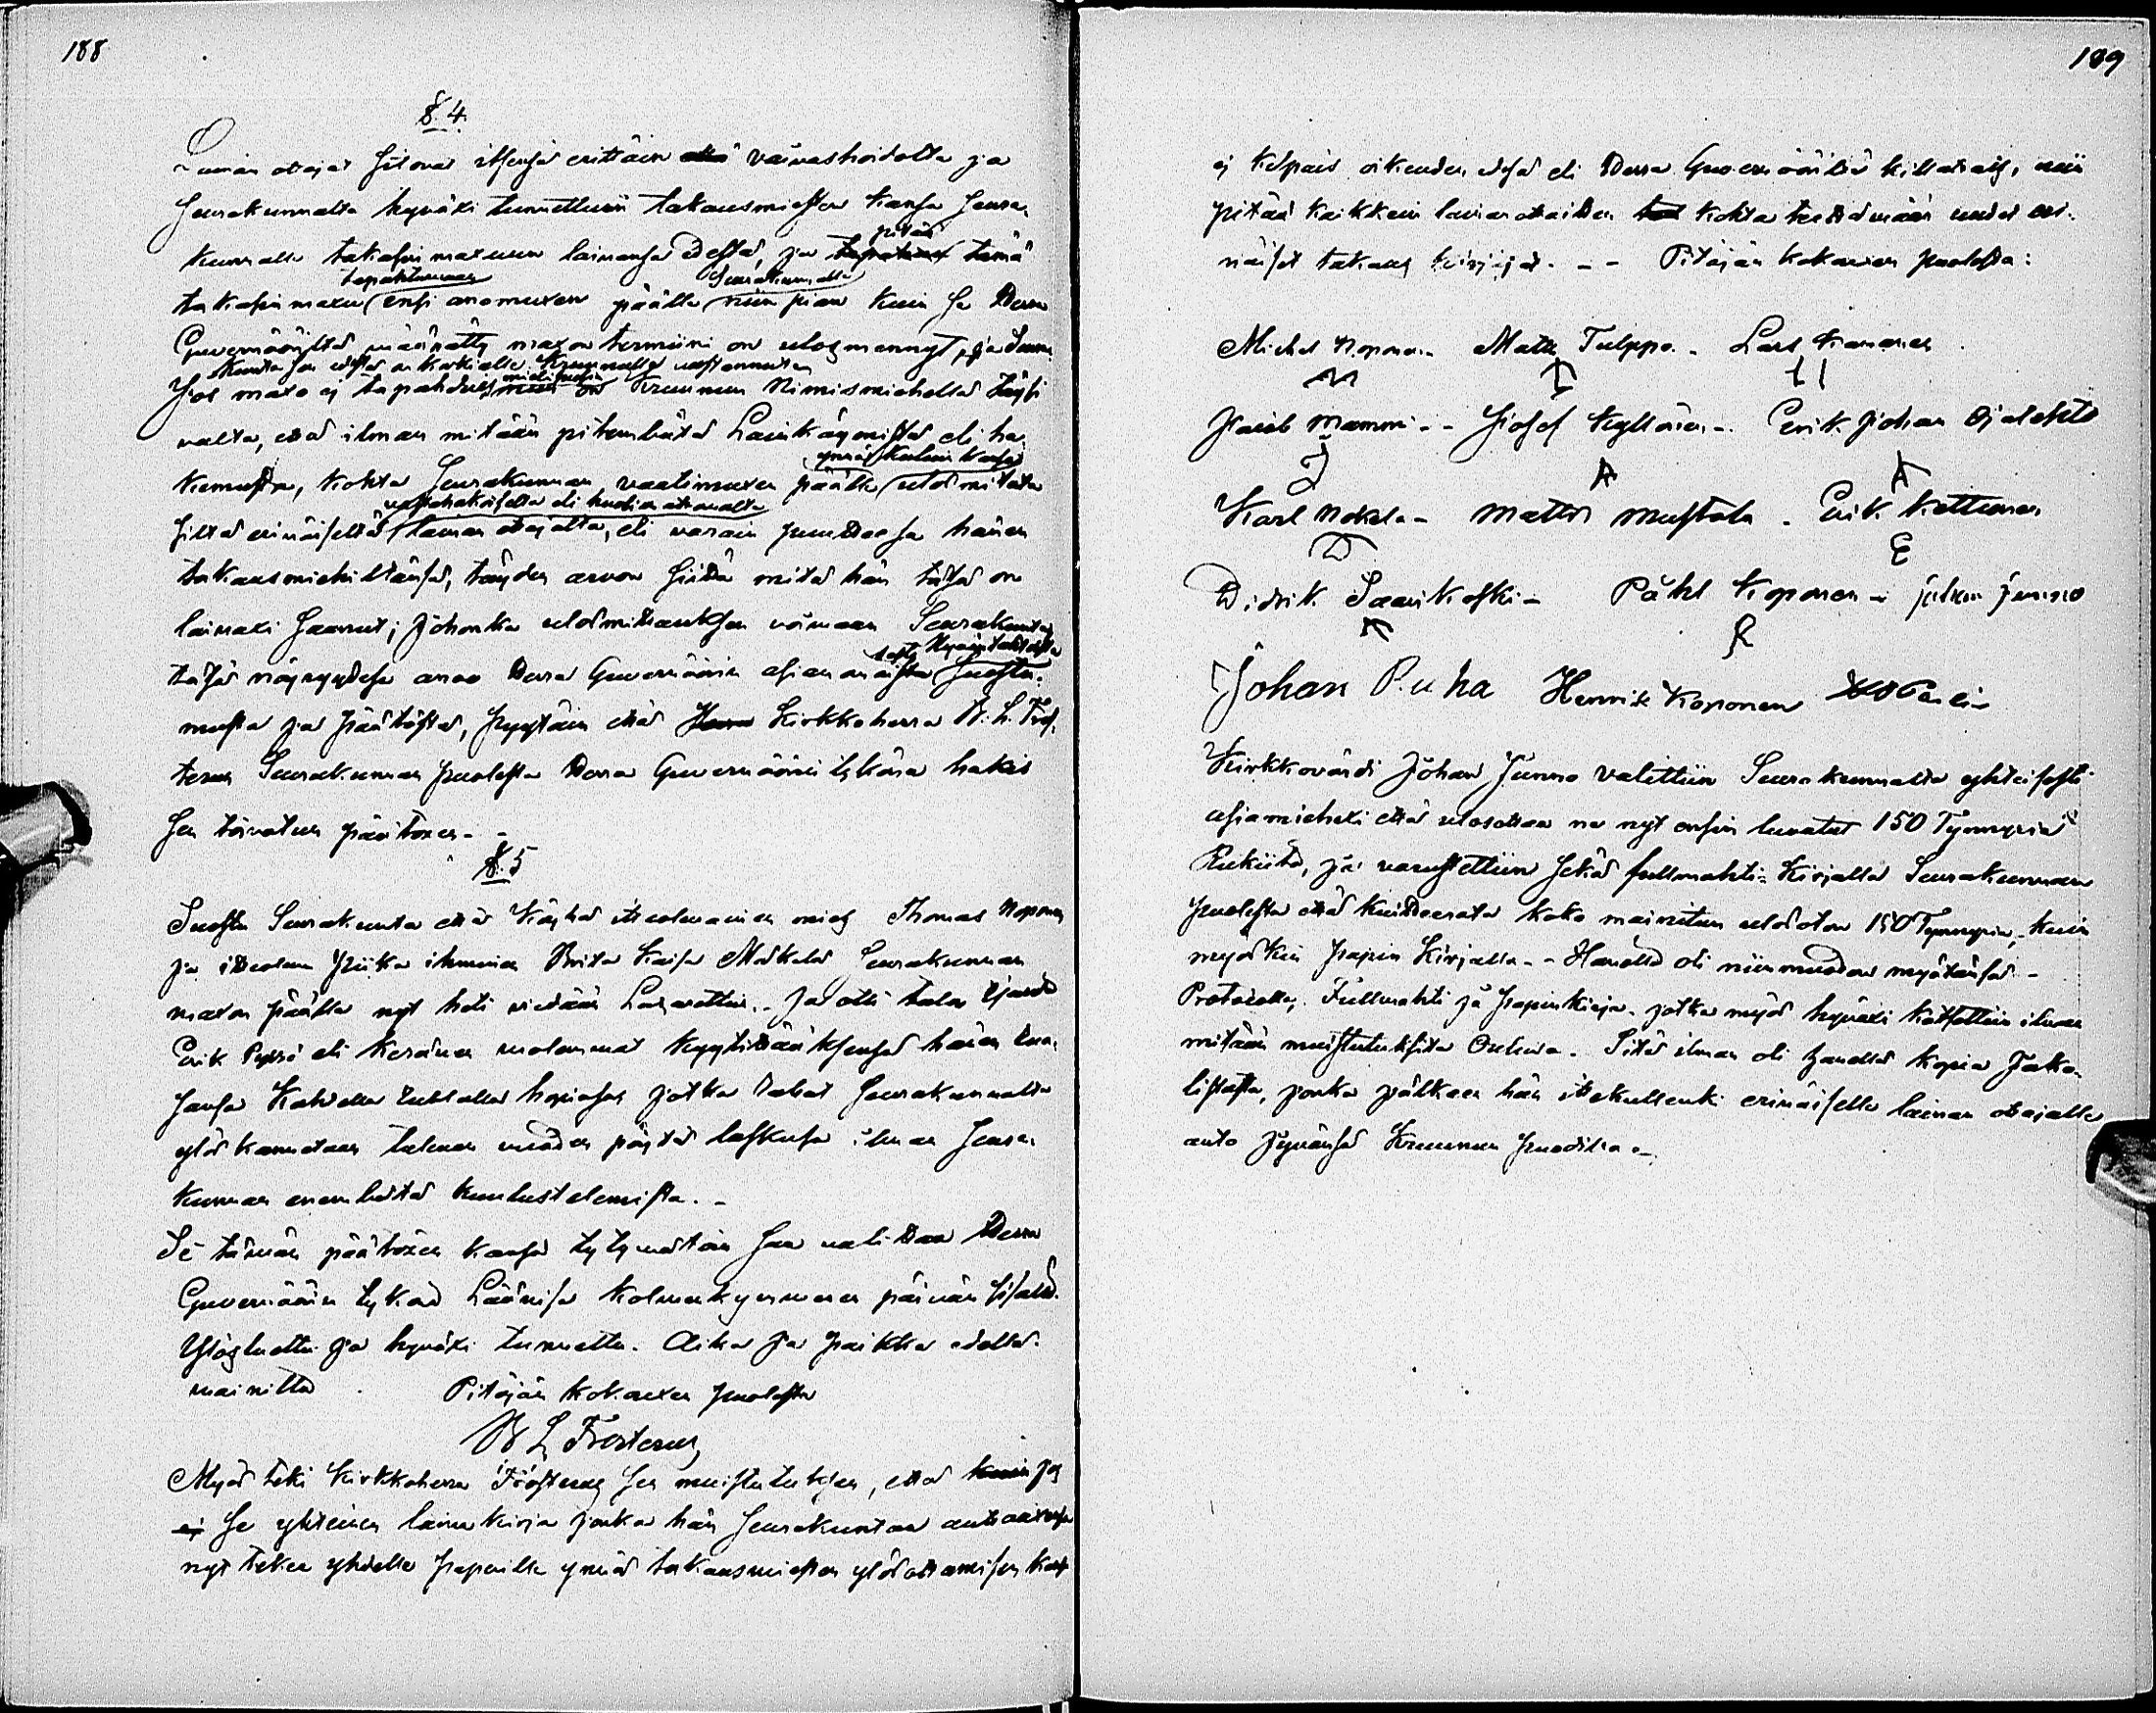 188
§. 4.
Lainan ottajat sitovat itsensä erittäin vaivashoidolta ja
Seurakunnalta hyväxi tunnettuin takausmiesten kansa Seura-
kunnalle takasin maxuun lainansa edestä, ja pitää tämä
tapahtuman Seurakunnalle
takasin maxu ensi anomuxen päälle niin pian kuin se Herra
Guvernööriltä määrätty maxon termiini on ulosmennyt, ja
Jos maxo ej tapahduis Kruunun Nimismiehellä täysi
valta, että ilman mitään pitembätä Lainkäymistä eli ha-
ynnä kuluin kansa
kemusta, kohta Seurakunnan vaatimuxen päälle ulosmitata
siltä erinäiseltä lainan ottajalta, eli varain puuttees­sa hänen
takausmiehiltänsä, täyden arvon siitä mitä hän tästä on
lainaxi saanut; johonka ulosmittauksen voimaan Seurakunta
tässä nöyryydesä anoo Herra Guvernöörin asianomaista suostu-
musta ja päätöstä, pyytäin että Kirkkoherra B. L. Fros-
terus Seurakunnan puolesta Herra Guvernöörin tykönä hakis
sen toivotun päätöxen. -
§. 5
Suostu Seurakunta että Köyhä itsolmainen mies Thomas Koponen
ja itseolem piika ihminen Brita Kaisa Mäkelä Seurakunnan
maxon päälle nyt heti viedään Lasarettiin. Ja otti talon
Erik Pyssö eli Keränen molemmat kyytitääksensä hänen
Kahdella Rublalla hopiassa jotka rahat Seurakunnalta
ylös kannetaan tulevan vuoden pöytä laskusa ilman Seura-
kunnan enembätä kuulustelemista. -
Se tämän päätöxen kansa tytymätöin saa valittaa Herra
Guvernöörin tykönä Läänisä kolmenkymmenen päivän sisällä.
Ylösluettu ja hyväxi tunnettu. Aika ja paikka edellä-
mainittu. Pitäjän kokouxen puolesta
B L Frosterus
Myös teki Kirkkoherra Frosterus sen muistutuksen, että jos
ej se yhteinen lainakirja jonka hän Seurakuntaan
nyt tekee yhdellä paperilla ynnä takausmiesten ylösottamisen kans
189
ej kelpais oikeuden edesä eli Herra Guvernööriltä killatais, niin
pitää kaikkein lainanottaitten kohta teettämään uudet eri-
näiset takaus kirjat. - - Pitäjän kokouxen puolesta:
Michel Koponen - Matts Tulppo - Lars Kananen
Jacob Mammi - - Josef Kyllönen - Erik Johan Ojalehto
Karl Nokela - Matts Mustola - Erik Kettunen
Didrik Saarikoski - Påhl Koponen - johan junno
Johan Puha Henrik Koponen
Kirkkovärdi Johan Junno valittiin Seurakunnalta yhteisesti
asiamiehexi että ulosottaa ne nyt ensin luvatut 150 Tynnyriä
Rukiita, ja varustettiin sekä fullmahti-Kirjalla Seurakunnan
puolesta että kuitteerata koko mainitun ulosoton 150 Tynnyriä, kuin
myöskin papin Kirjalla. - Hänellä oli niinmuodoin myötänsä -
Protocolla, Fullmahti ja papinkirja. jotka myös hyväxi katsottiin ilman
mitään muistutuksita Oulusa. Sitä ilman oli hänellä kopia Jako-
listasta, jonka jälkeen hän itsekullenki erinäiselle lainan ottajalle
anto jyvänsä Kruunun puodista. -